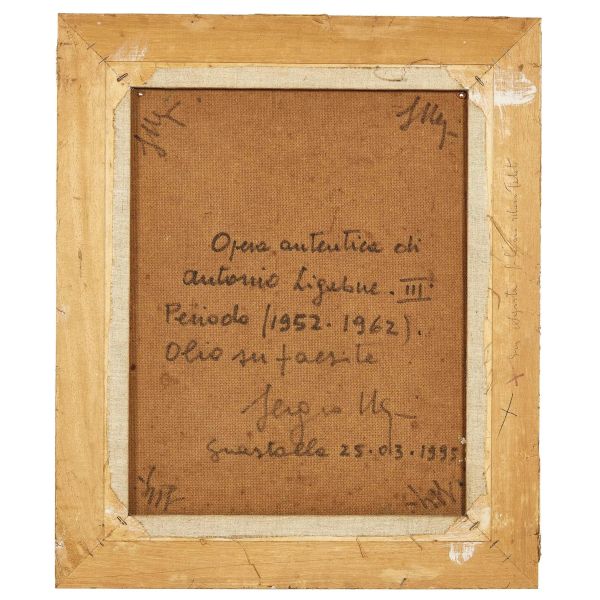 Opera autentica di
Antonio Ligabue. III.
Periodo (1952-1962).
Olio su faesite
Sergio Negri
Guastalla 25.03.1995